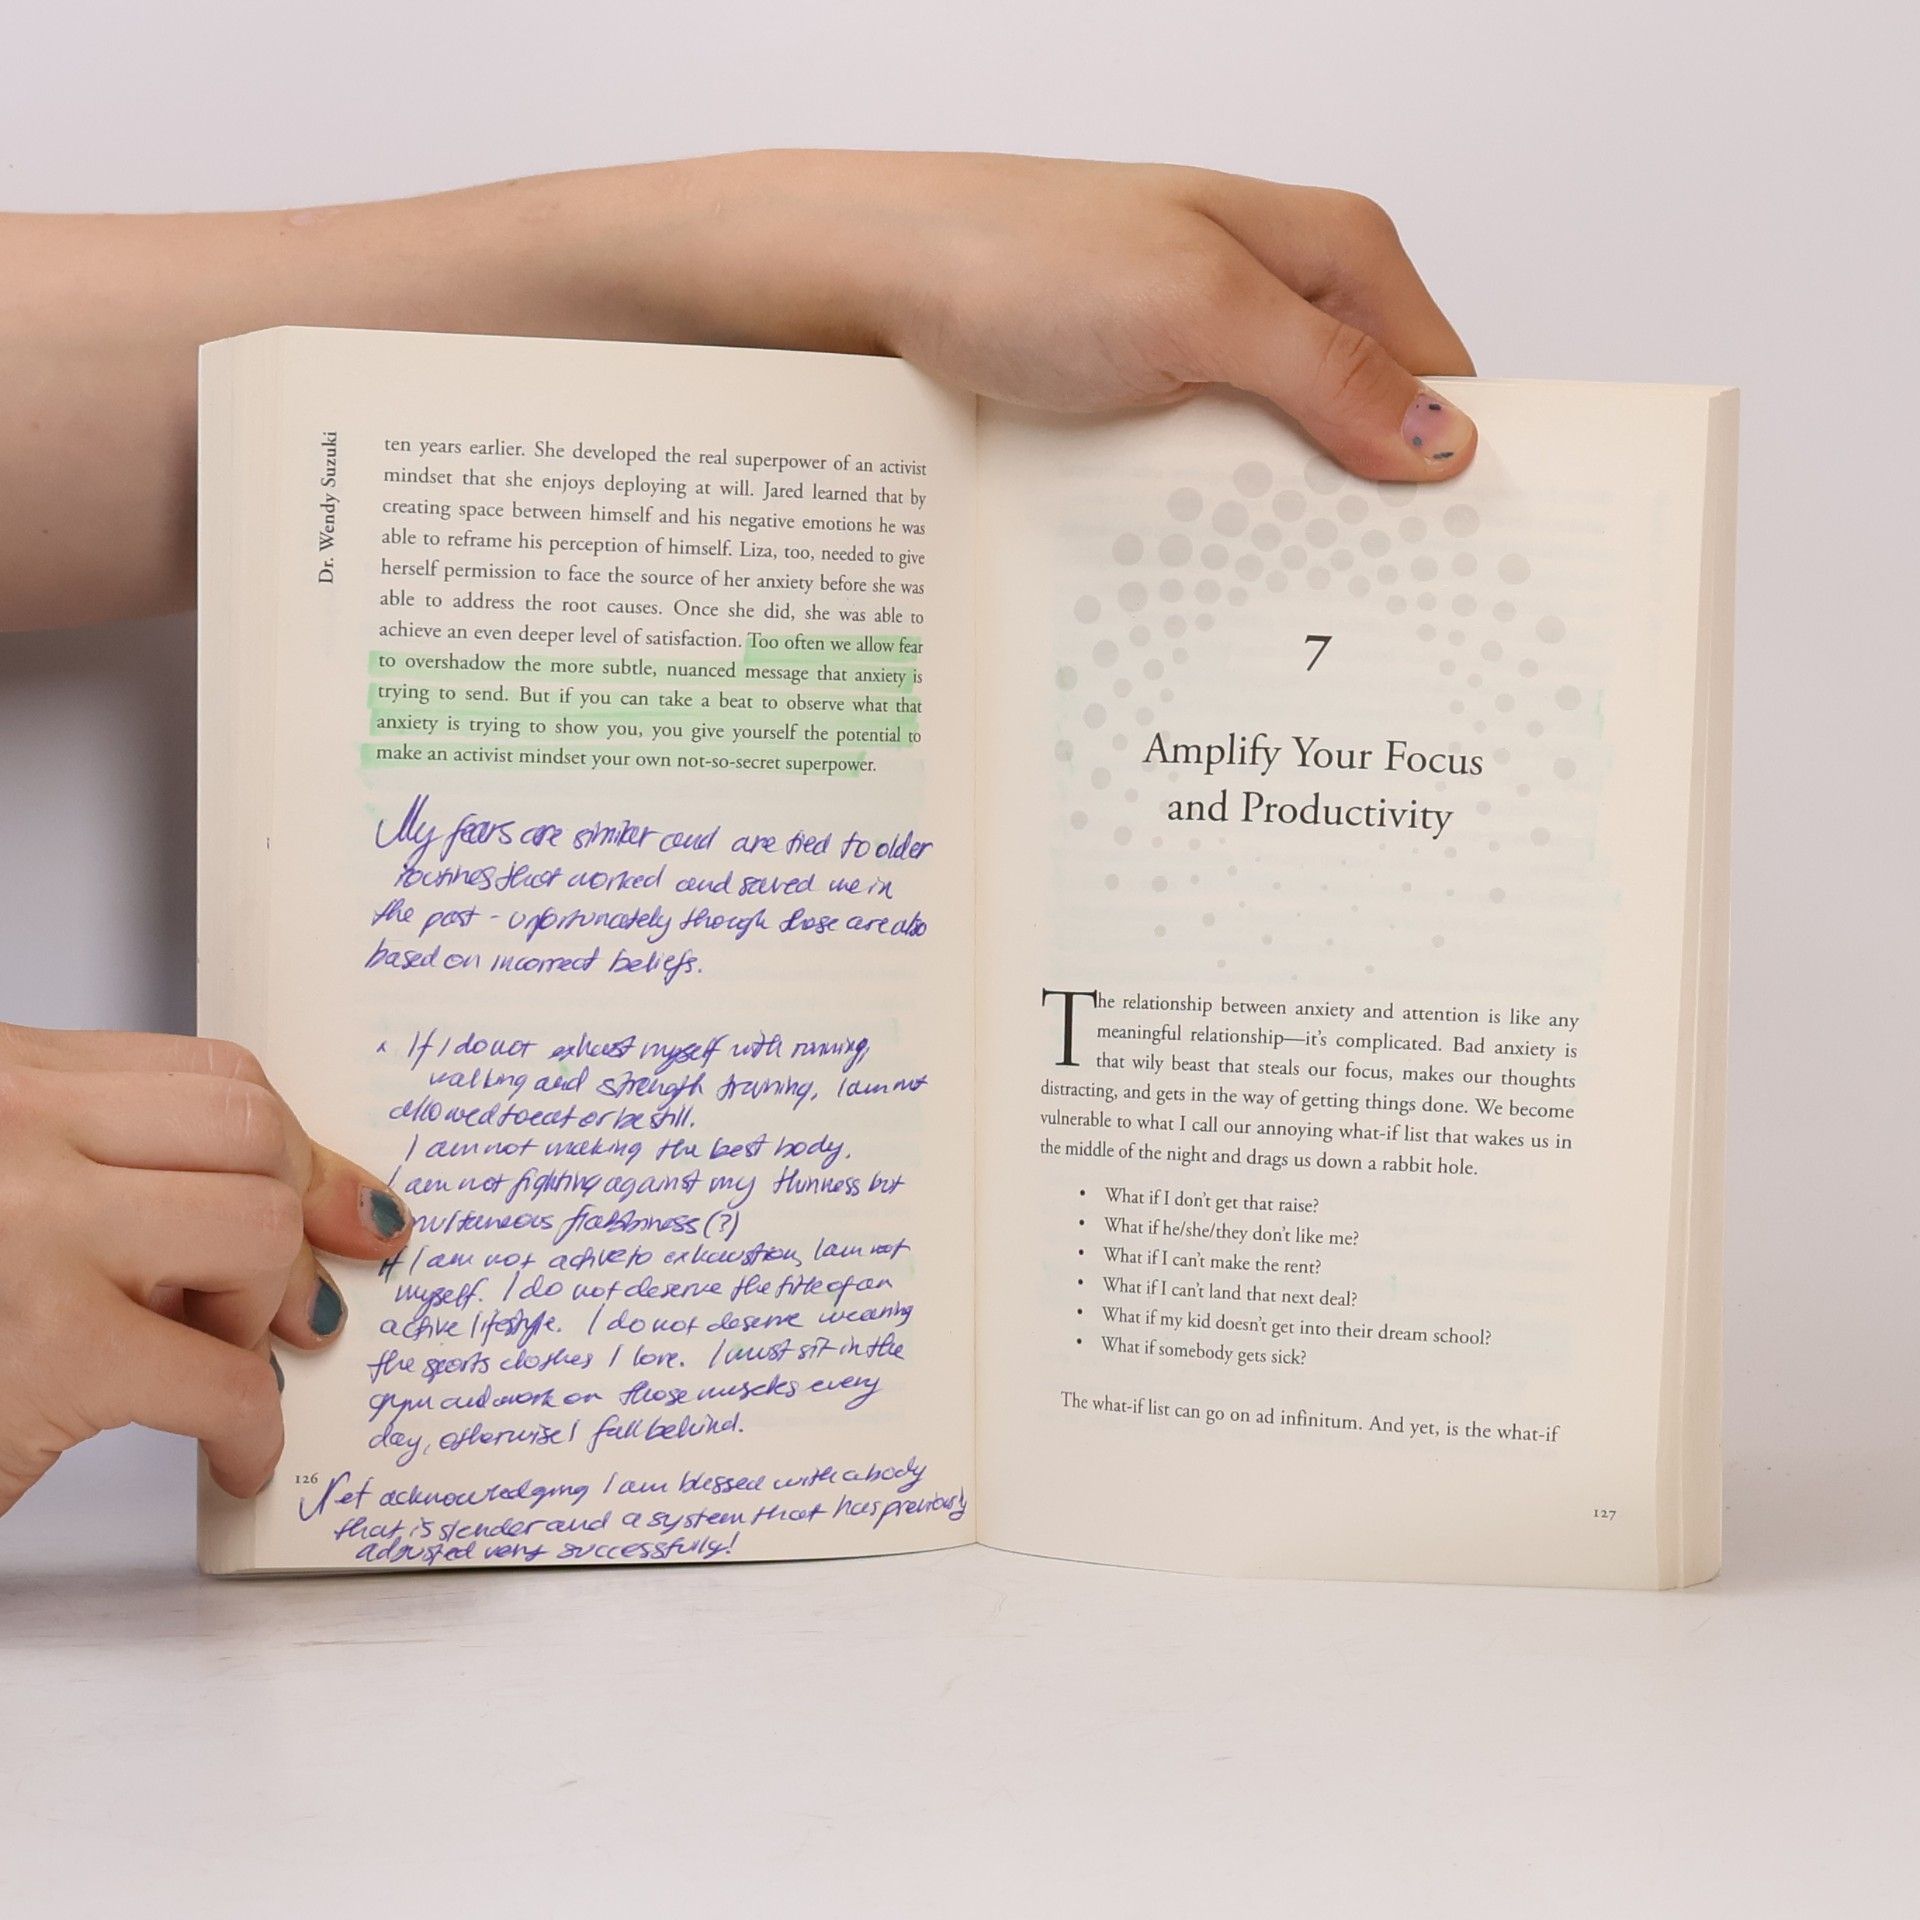 Dr. Wendy Suzuki
ten years earlier. She developed the real superpower of an activist
mindset that she enjoys deploying at will. Jared learned that by
creating space between himself and his negative emotions he was
able to reframe his perception of himself. Liza, too, needed to give
herself permission to face the source of her anxiety before she was
able to address the root causes. Once she did, she was able to
achieve an even deeper level of satisfaction. Too often we allow fear
to overshadow the more subtle, nuanced message that anxiety is
trying to send. But if you can take a beat to observe what that
anxiety is trying to show you, you give yourself the potential to
make an activist mindset your own not-so-secret superpower.
My fears are similar and are tied to older
routines that worked and saved me in
the past - unfortunately though those are also
based on incorrect beliefs.
x If I do not exhaust myself with running,
walking and strength training, I am not
allowed to eat or be still.
I am not making the best body.
I am not fighting against my thinness but
flabbiness (?)
If I am not active to exhaustion, I am not
myself. I do not deserve the title of an
active lifestyle. I do not deserve wearing
the sports clothes I love. I must sit in the
gym and work on those muscles every
day, otherwise I fall behind.
126
Yet acknowledging I am blessed with a body
that is slender and a system that has previously
adjusted very successfully!
7
Amplify Your Focus
and Productivity
The relationship between anxiety and attention is like any
meaningful relationship—it's complicated. Bad anxiety is
that wily beast that steals our focus, makes our thoughts
distracting, and gets in the way of getting things done. We become
vulnerable to what I call our annoying what-if list that wakes us in
the middle of the night and drags us down a rabbit hole.
• What if I don't get that raise?
• What if he/she/they don't like me?
• What if I can't make the rent?
• What if I can't land that next deal?
• What if my kid doesn't get into their dream school?
• What if somebody gets sick?
The what-if list can go on ad infinitum. And yet, is the what-if
127